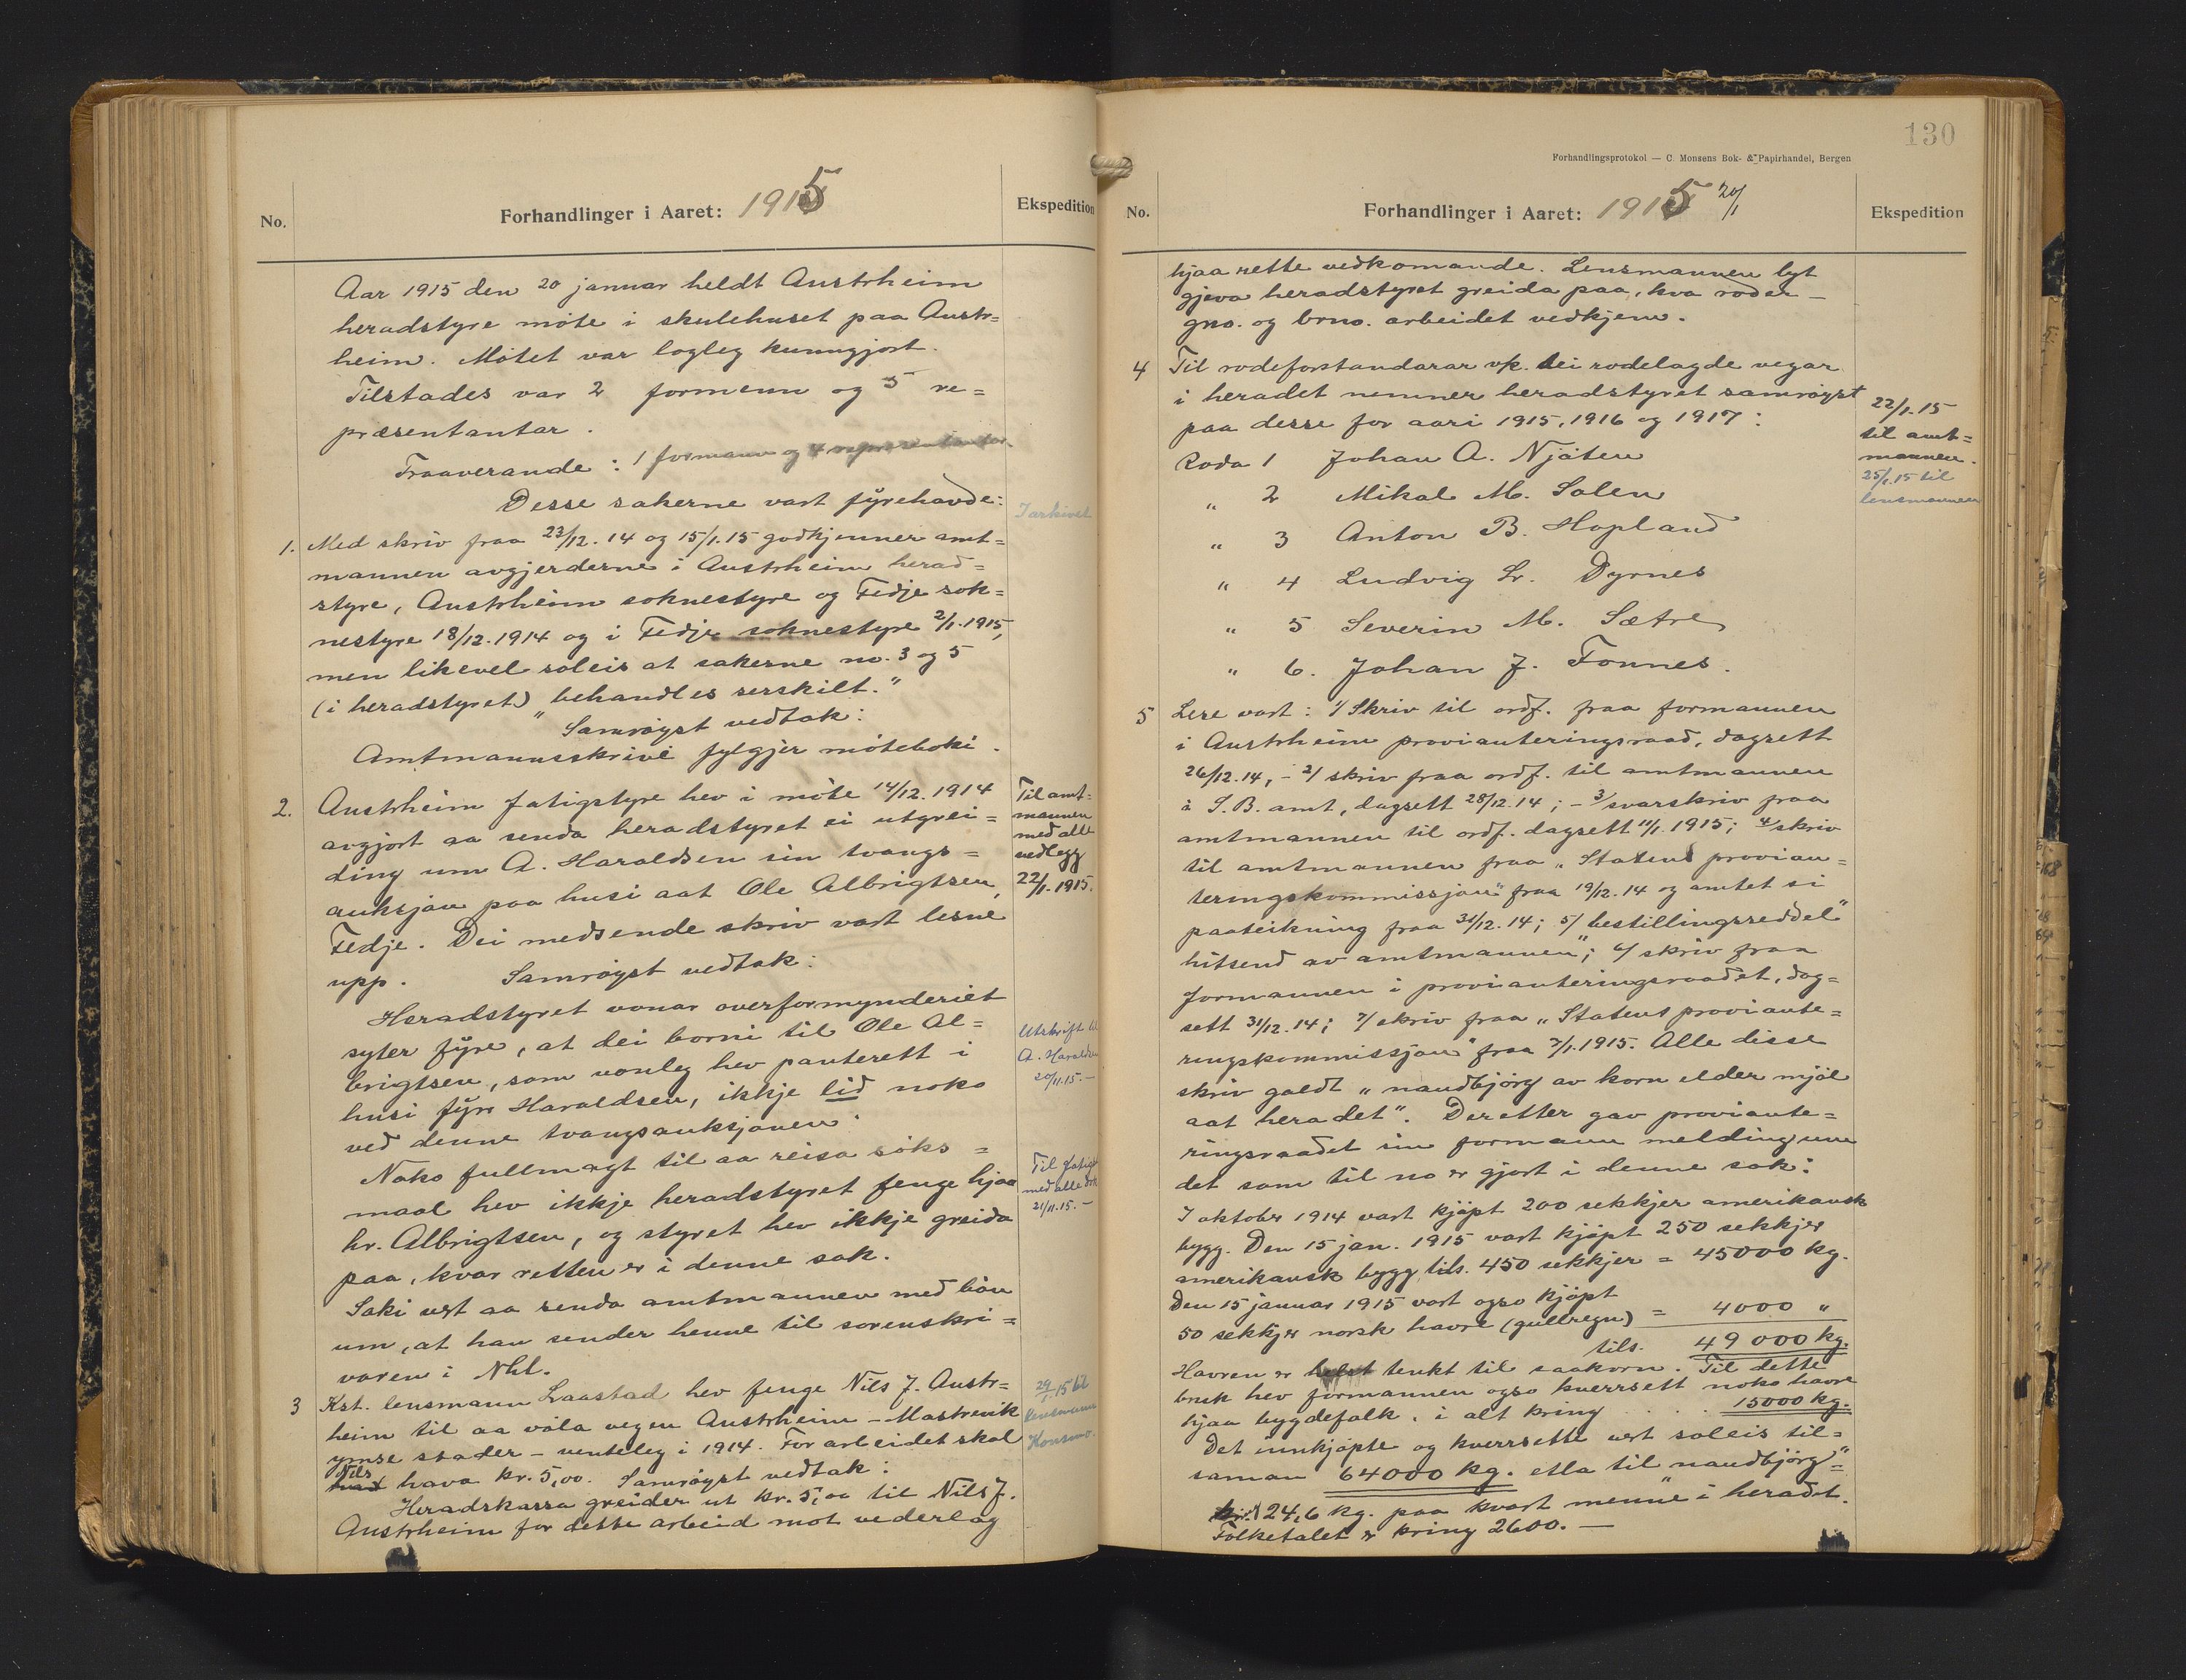 No.
Forhandlinger i Aaret: 1915
Ekspedition
Aar 1915 den 20 januar heldt Austrheim
heradstyre møte i skulehuset paa Austr=
heim. Møtet var logleg kunngjort.
Tilstades var 2 formenn og 5 re=
præsentantar.
Fraaverande: 1 formann og 4 representantar.
Desse sakerne vart fyrehavde:
I arkivet
1. Med skriv fraa 23/12.14 og 15/1.15 godkjenner amt=
mannen avgjerderne i Austrheim herad=
styre, Austrheim soknestyre og Fedje sok=
nestyre 18/12.1914 og i Fedje soknestyre 2/1.1915,
men likevel soleis at sakerne no. 3 og 5
(i heradstyret) behandles serskilt."
Samrøyst vedtak:
Amtmannsskrivi fylgjer møteboki.
2. Austrheim fatigstyre hev i møte 14/12.1914
avgjort aa senda heradstyret ei utgrei=
ding um A. Haraldsen sin tvangs=
auksjon paa husi aat Ole Albrigtsen,
Fedje. Dei medsende skriv vart lesne
upp. Samrøyst vedtak:
Til amt=
mannen
med alle
vedlegg
22/1.1915.
Heradstyret vonar overformynderiet
syter fyre, at dei borni til Ole Al=
brigtsen, som vonleg hev panterett i
husi fyre Haraldsen, ikkje lid noko
ved denne tvangsauksjonen
Utskrift til
A. Haraldsen
20/11.15.—
Noko fullmagt til aa reisa søks=
maal hev ikkje heradstyret fenge hjaa
hr. Albrigtsen, og styret hev ikkje greida
paa, kvar retten er i denne sak.
Saki vert aa senda amtmannen med bøn
um, at han sender henne til sorenskri=
varen i Nhl.
Til fatigst
med alle dok
21/11.15.—
3 Kst. lensmann Laastad hev fenge Nils J. Austr=
heim til aa vøla vegen Austrheim – Mastrevik
ymse stader – venteleg i 1914. For arbeidet skal
Nils hava kr. 5,00. Samrøyst vedtak:
Heradskassa greider ut kr. 5,00 til Nils J.
Austrheim for dette arbeid mot vederlag
29/1.15 til
lensmann
130
Forhandlingsprotokol — C. Monsens Bok- & Papirhandel, Bergen
No.
Forhandlinger i Aaret: 1915 20/1
Ekspedition
hjaa rette vedkomande. Lensmannen lyt
gjeva heradstyret greida paa, kva roder –
gno. og brno. arbeidet vedkjem.
4 Til rodeforstandarar vk. dei rodelagde vegar
i heradet nemner heradstyret samrøyst
paa desse for aari 1915, 1916 og 1917:
22/1.15
til amt=
mannen.
25/1.15 til
lensmannen
Roda 1 Johan A. Njøten
" 2 Mikal M. Solen
" 3 Anton B. Hopland
" 4 Ludvig L. Dyrnes
" 5 Severin M. Sætre
" 6. Johan J. Fonnes.
5 Lese vart: 1/ Skriv til ordf. fraa formannen
i Austrheim provianteringsraad, dagsett
26/12.14, – 2/ skriv fraa ordf. til amtmannen
i S.B. amt, dagsett 28/12.14; – 3/ svarskriv fraa
amtmannen til ordf. dagsett 11/1.1915; 4/ skriv
til amtmannen fraa "Statens provian=
teringskommissjon" fraa 19/12.14 og amtet si
paateikning fraa 31/12.14; 5/ bestillingsseddel"
hitsend av amtmannen"; 6/ skriv fraa
formannen i provianteringsraadet, dag=
sett 31/12.14; 7/ skriv fraa "Statens proviante=
ringskommissjon" fraa 7/1.1915. Alle disse
skriv galdt "naudbjørg av korn elder mjøl
aat heradet". Deretter gav proviante=
ringsraadet sin formann melding um
det som til no er gjort i denne sak:
I oktober 1914 vart kjøpt 200 sekkjer amerikansk
bygg. Den 15 jan. 1915 vart kjøpt 250 sekkjer
amerikansk bygg, tils. 450 sekkjer = 45000 kg.
Den 15 januar 1915 vart ogso kjøpt
50 sekkjer norsk havre (gullregn) = 4000 "
tils. 49000 kg.
Havren er helst tenkt til saakorn. Til dette
bruk hev formannen ogso kverrsett noko havre
hjaa bygdefolk, i alt kring . . . 15000 kg.
Det innkjøpte og kverrsette vert soleis til=
saman 64000 kg. etla til naudbjørg" =
24,6 kg. paa kvart menne" i heradet.
Folketalet er kring 2600. —